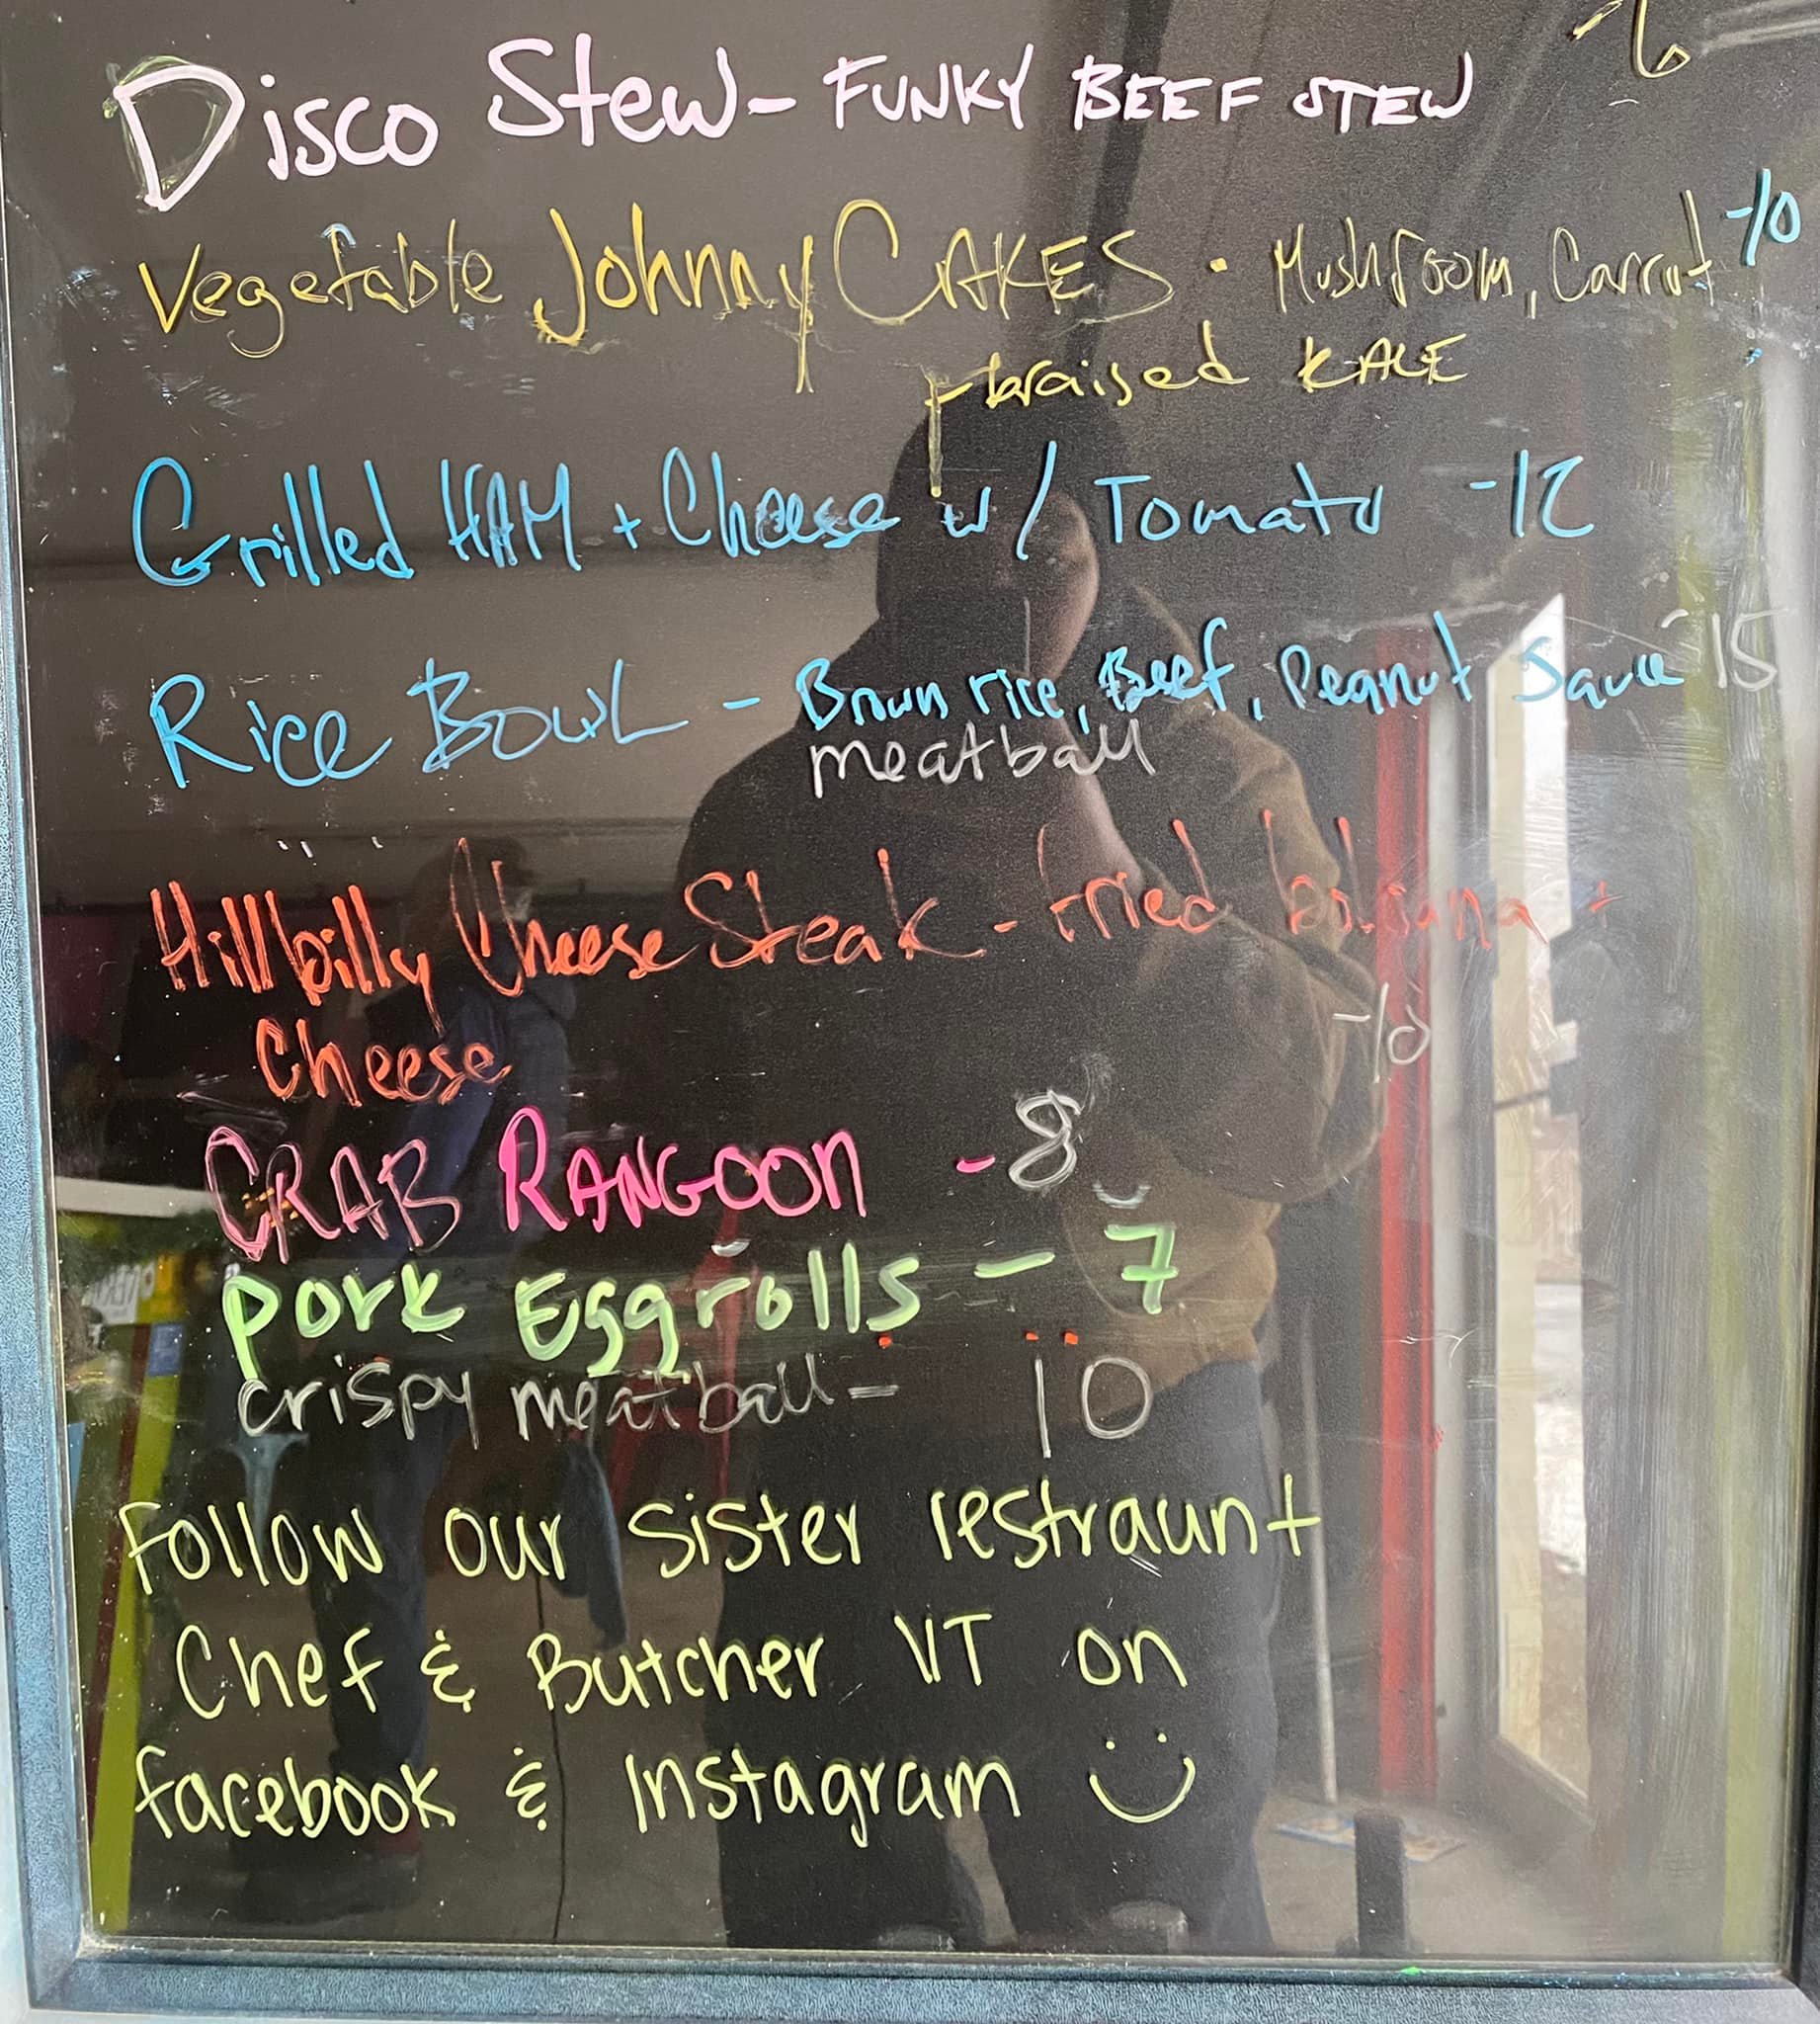 Disco Stew - FUNKY BEEF STEW -6
Vegetable Johnny CAKES · Mushroom, Carrot -10
+ braised KALE
Grilled HAM + Cheese w/ Tomato -12
Rice Bowl - Brown rice, Beef, Peanut Sauce 15
meatball
Hillbilly Cheese Steak - fried bologna +
Cheese -10
CRAB RANGOON - 8
Pork Eggrolls - 7
crispy meatball - 10
Follow our sister restraunt
Chef & Butcher VT on
facebook & Instagram